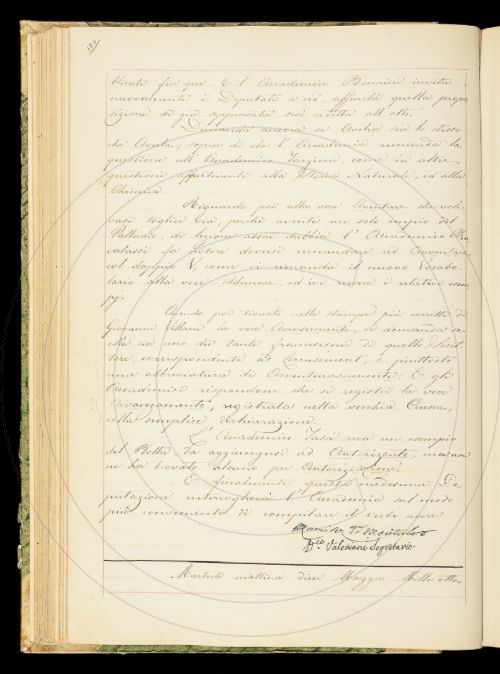 blicati fin qui. E l'Accademico Bencini invita
nuovamente i Deputati a ciò, affinchè quella propo
sizione di già approvata sia unita all'atto.
Domanda ancora se Avolio sia lo stesso
che Avola; sopra di che l'Accademia rimanda la
questione all'Accademico Targioni, come in altre
questioni appartenenti alla Storia Naturale, ed alla
Chimica.
Riguardo poi alla voce
vasi togliere via, perchè avente un solo esempio del
Palladio, di lezione assai dubbia l'Accademico
fa notare doversi rimandare ad
col doppio V, come vi rimanda il nuovo Vocabo-
lario alla voce ed ivi recare i relativi esem
pj.
Avendo poi trovato nelle stampe più corrette di
Giovanni Villani la voce Avvosamento, si domanda se
ella sia uno dei tanti francesismi di quello Scrit
tore, corrispondente a o piuttosto
una abbreviatura di Avventurosamente. E gli
Accademici rispondono che si registri la voce
Avvanzamento, registrata nella vecchia Crusca,
colla semplice dichiarazione.
L'Accademico Tassi reca un esempio
del Botta, da aggiungersi ad Autorizzato, ma non
ne ha trovato alcuno per Autorizzazione.
E finalmente questa medesima De
putazione interrogherà l'Accademia sul modo
più conveniente di compilare il verbo avere.
Valeriani Segretario
Martedì mattina dieci Maggio Mille otto-